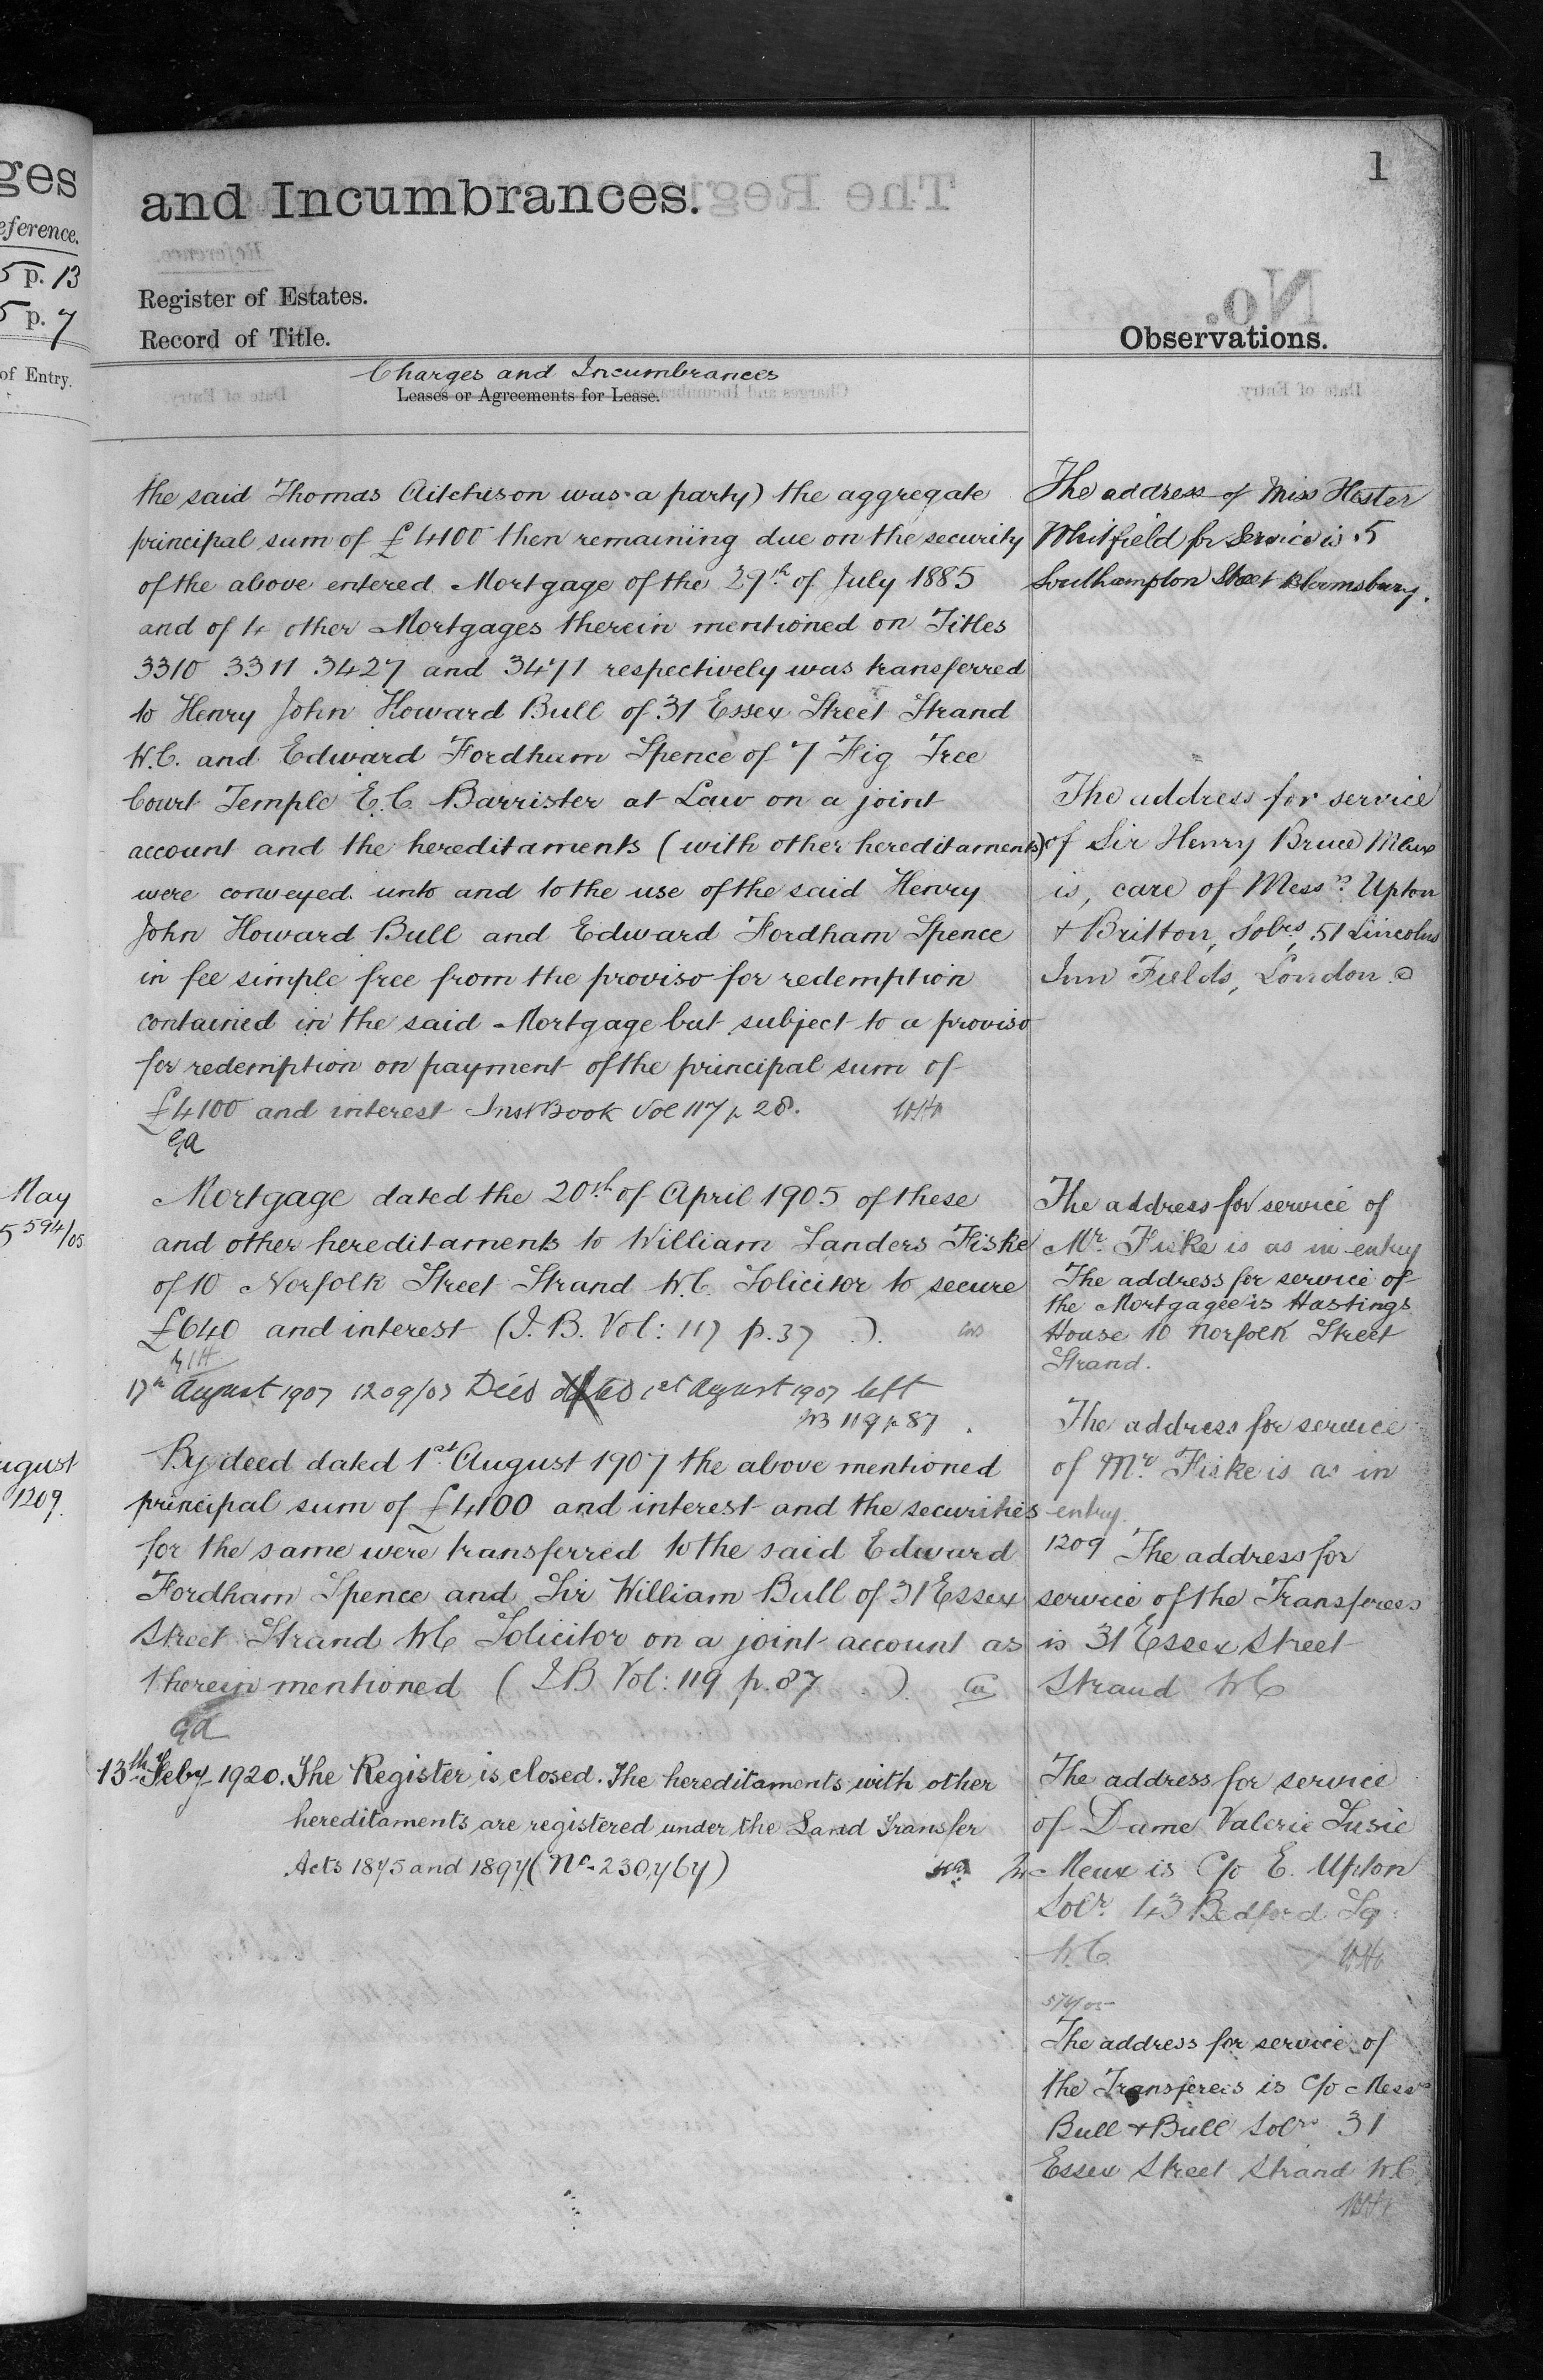 ges
eference.
5 p. 13
5 p. 7
of Entry.
May
5 594/05
ugust
1209.
1
and Incumbrances.
Register of Estates.
Record of Title.
Charges and Incumbrances
Leases or Agreements for Lease.
the said Thomas Aitchison was a party) the aggregate
principal sum of £4100 then remaining due on the security
of the above entered Mortgage of the 29th of July 1885
and of 4 other Mortgages therein mentioned on Titles
3310 3311 3427 and 3471 respectively was transferred
to Henry John Howard Bull of 31 Essex Street Strand
W.C. and Edward Fordham Spence of 7 Fig Tree
Court Temple E.C. Barrister at Law on a joint
account and the hereditaments (with other hereditaments)
were conveyed unto and to the use of the said Henry
John Howard Bull and Edward Fordham Spence
in fee simple free from the proviso for redemption
contained in the said Mortgage but subject to a proviso
for redemption on payment of the principal sum of
£4100 and interest Inst Book Vol 117 p 28.
Mortgage dated the 20th of April 1905 of these
and other hereditaments to William Landers Fiske
of 10 Norfolk Street Strand W.C. Solicitor to secure
£640 and interest (I.B. Vol: 117 p. 37 ).
17th August 1907 1209/07 Deed dated 1st August 1907 left
119 p 87
By deed dated 1st August 1907 the above mentioned
principal sum of £4100 and interest and the securities
for the same were transferred to the said Edward
Fordham Spence and Sir William Bull of 31 Essex
Street Strand WC Solicitor on a joint account as
therein mentioned (I.B. Vol: 119 p. 87 ).
13th Feby 1920. The Register is closed. The hereditaments with other
hereditaments are registered under the Land Transfer
Acts 1875 and 1897 (No. 230,767)
Observations.
The address of Miss Hester
Whitfield for Service is 5
Southampton Street Bloomsbury.
The address for service
of Sir Henry Bruce Meux
is, care of Messrs Upton
& Britton, Solrs, 51 Lincolns
Inn Fields, London.
The address for service of
Mr. Fiske is as in entry
The address for service of
the Mortgagee is Hastings
House 10 Norfolk Street
Strand.
The address for service
of Mr. Fiske is as in
entry.
1209 The address for
service of the Transferees
is 31 Essex Street
Strand WC
The address for service
of Dame Valerie Susie
Meux is C/o E. Upton
Solr. 43 Bedford Sq:
W.C.
574/05
The address for service of
the Transferees is C/o Messrs
Bull & Bull Solrs 31
Essex Street Strand W.C.